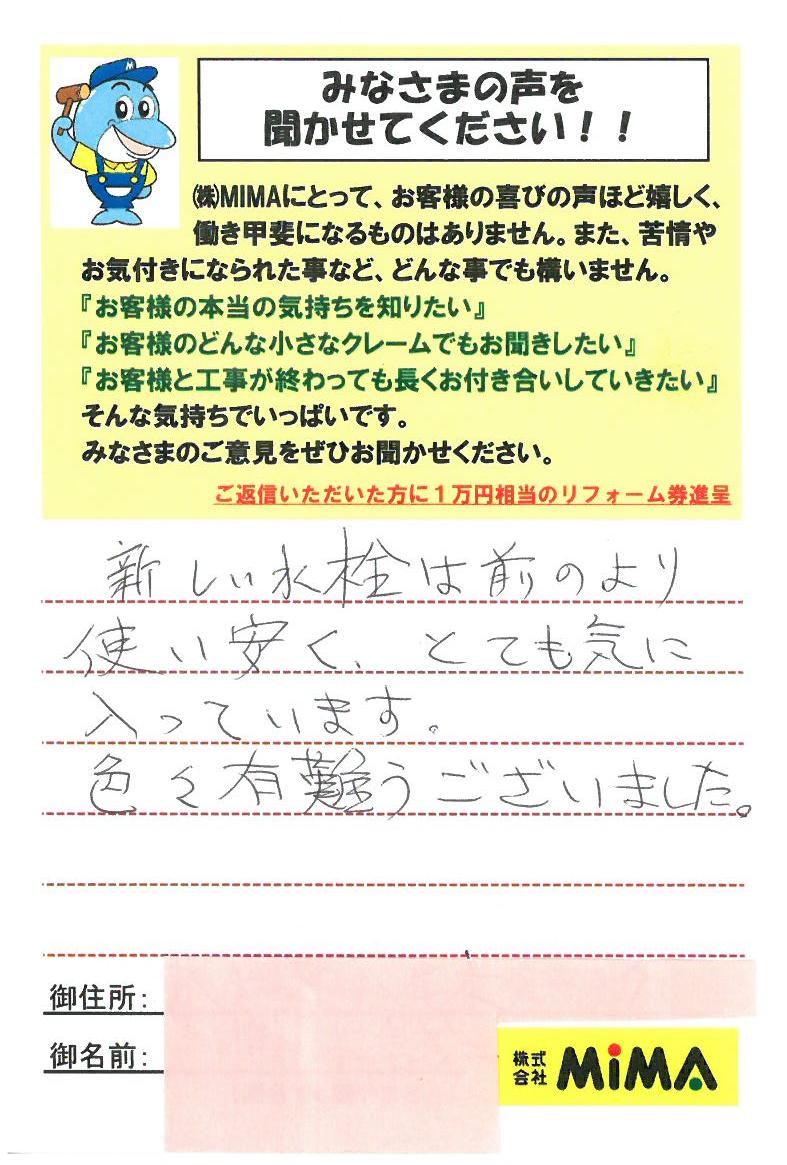 M
みなさまの声を
聞かせてください！！
㈱MIMAにとって、お客様の喜びの声ほど嬉しく、
働き甲斐になるものはありません。また、苦情や
お気付きになられた事など、どんな事でも構いません。
『お客様の本当の気持ちを知りたい』
『お客様のどんな小さなクレームでもお聞きしたい』
『お客様と工事が終わっても長くお付き合いしていきたい』
そんな気持ちでいっぱいです。
みなさまのご意見をぜひお聞かせください。
ご返信いただいた方に１万円相当のリフォーム券進呈
新しい水栓は前のより
使い安く、とても気に
入っています。
色々有難うございました。
御住所：
御名前：
株式会社 MiMA